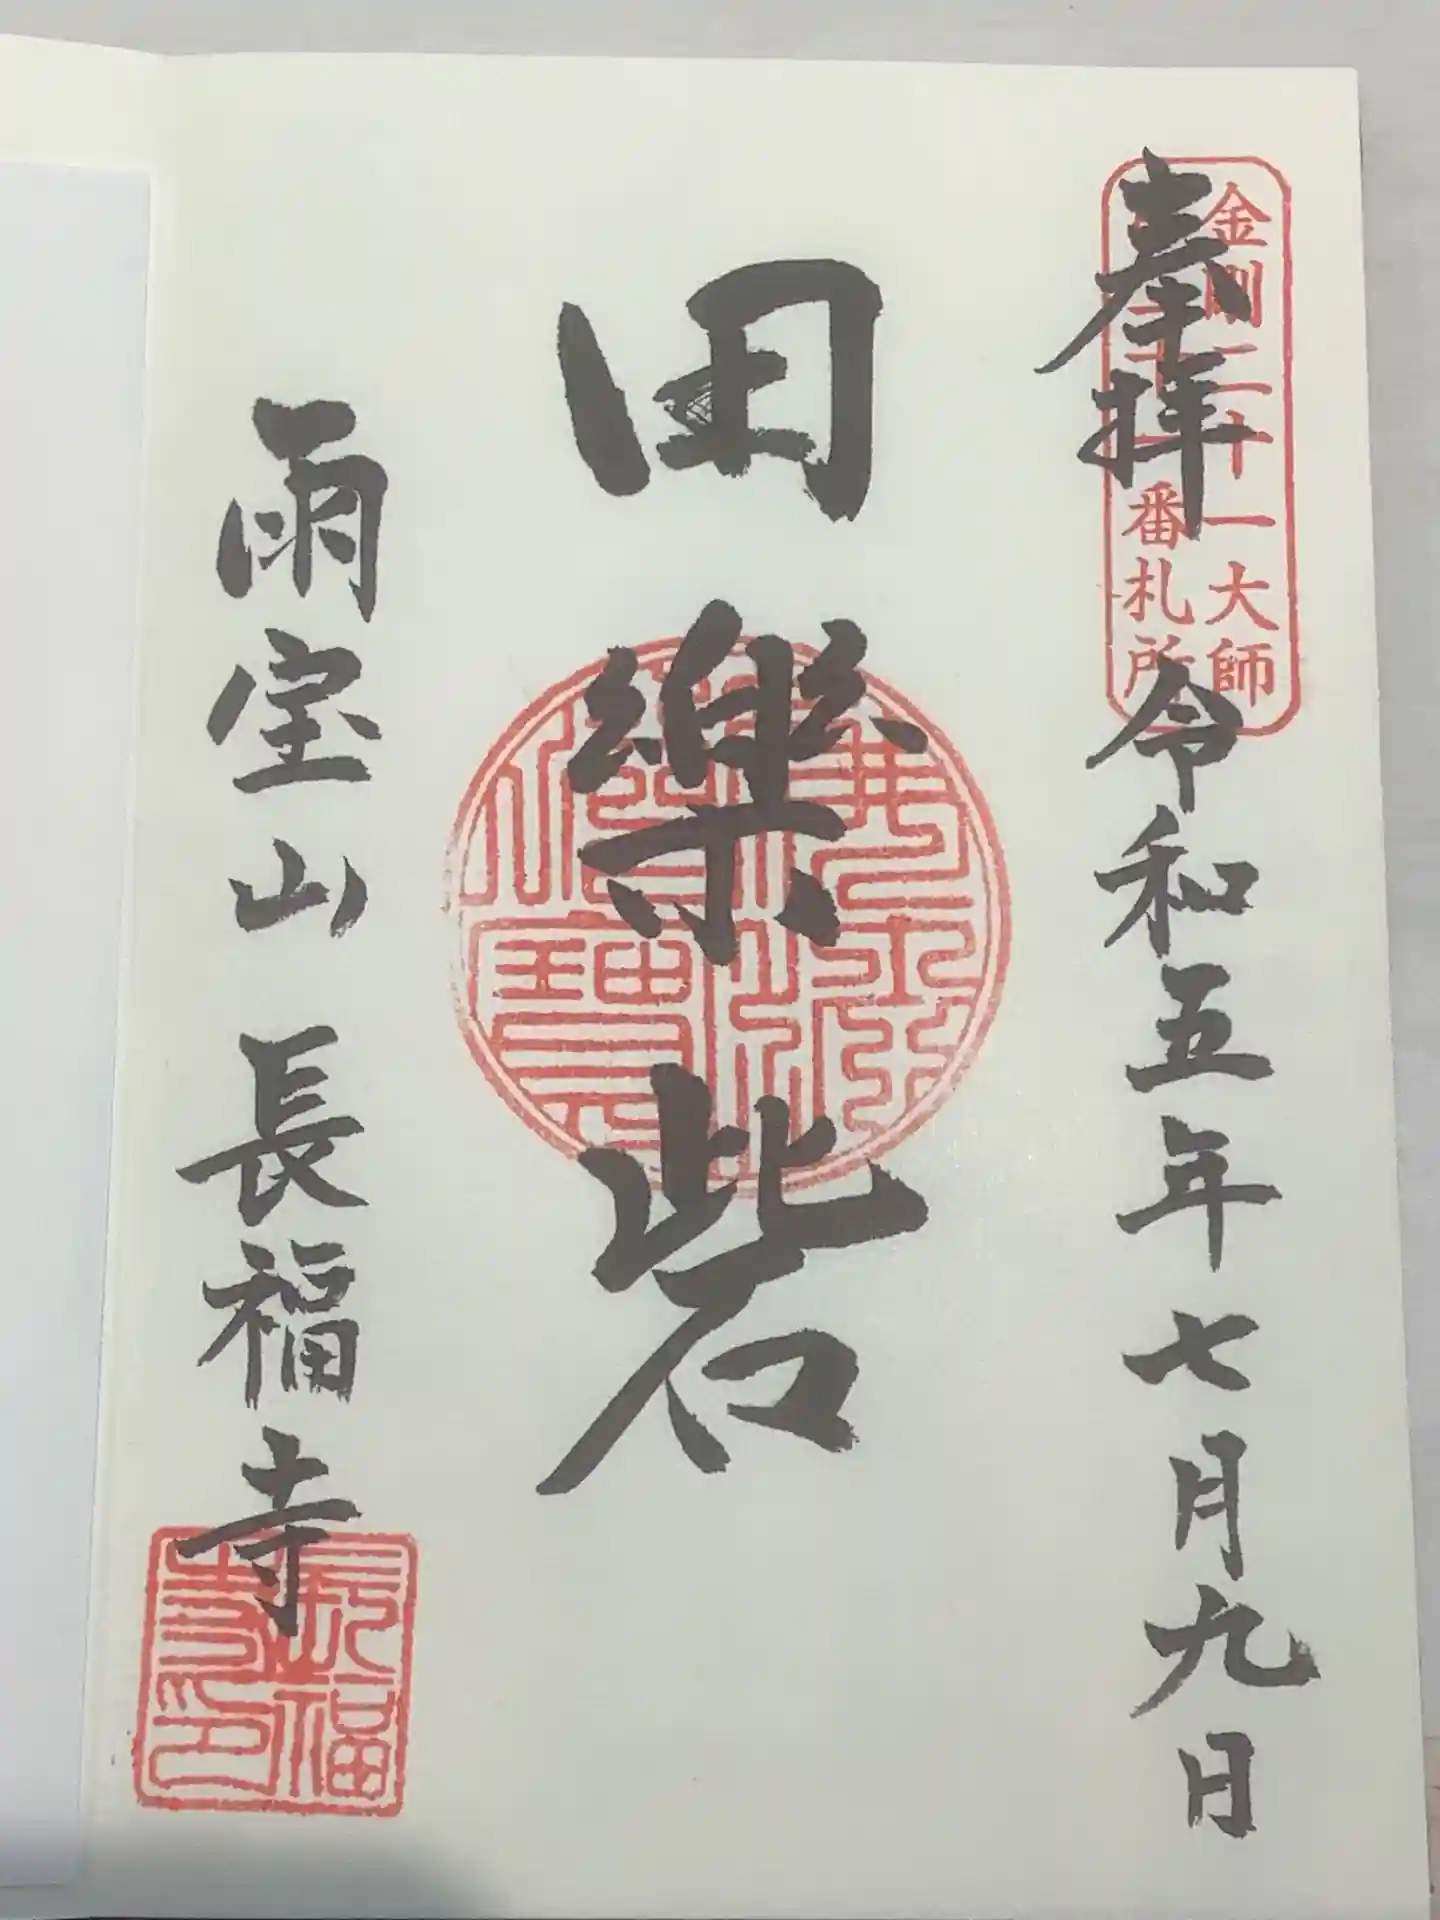 金剛二十一大師
番札所
奉拝 令和五年七月九日
田樂砦
雨宝山 長福寺
長福
寺印